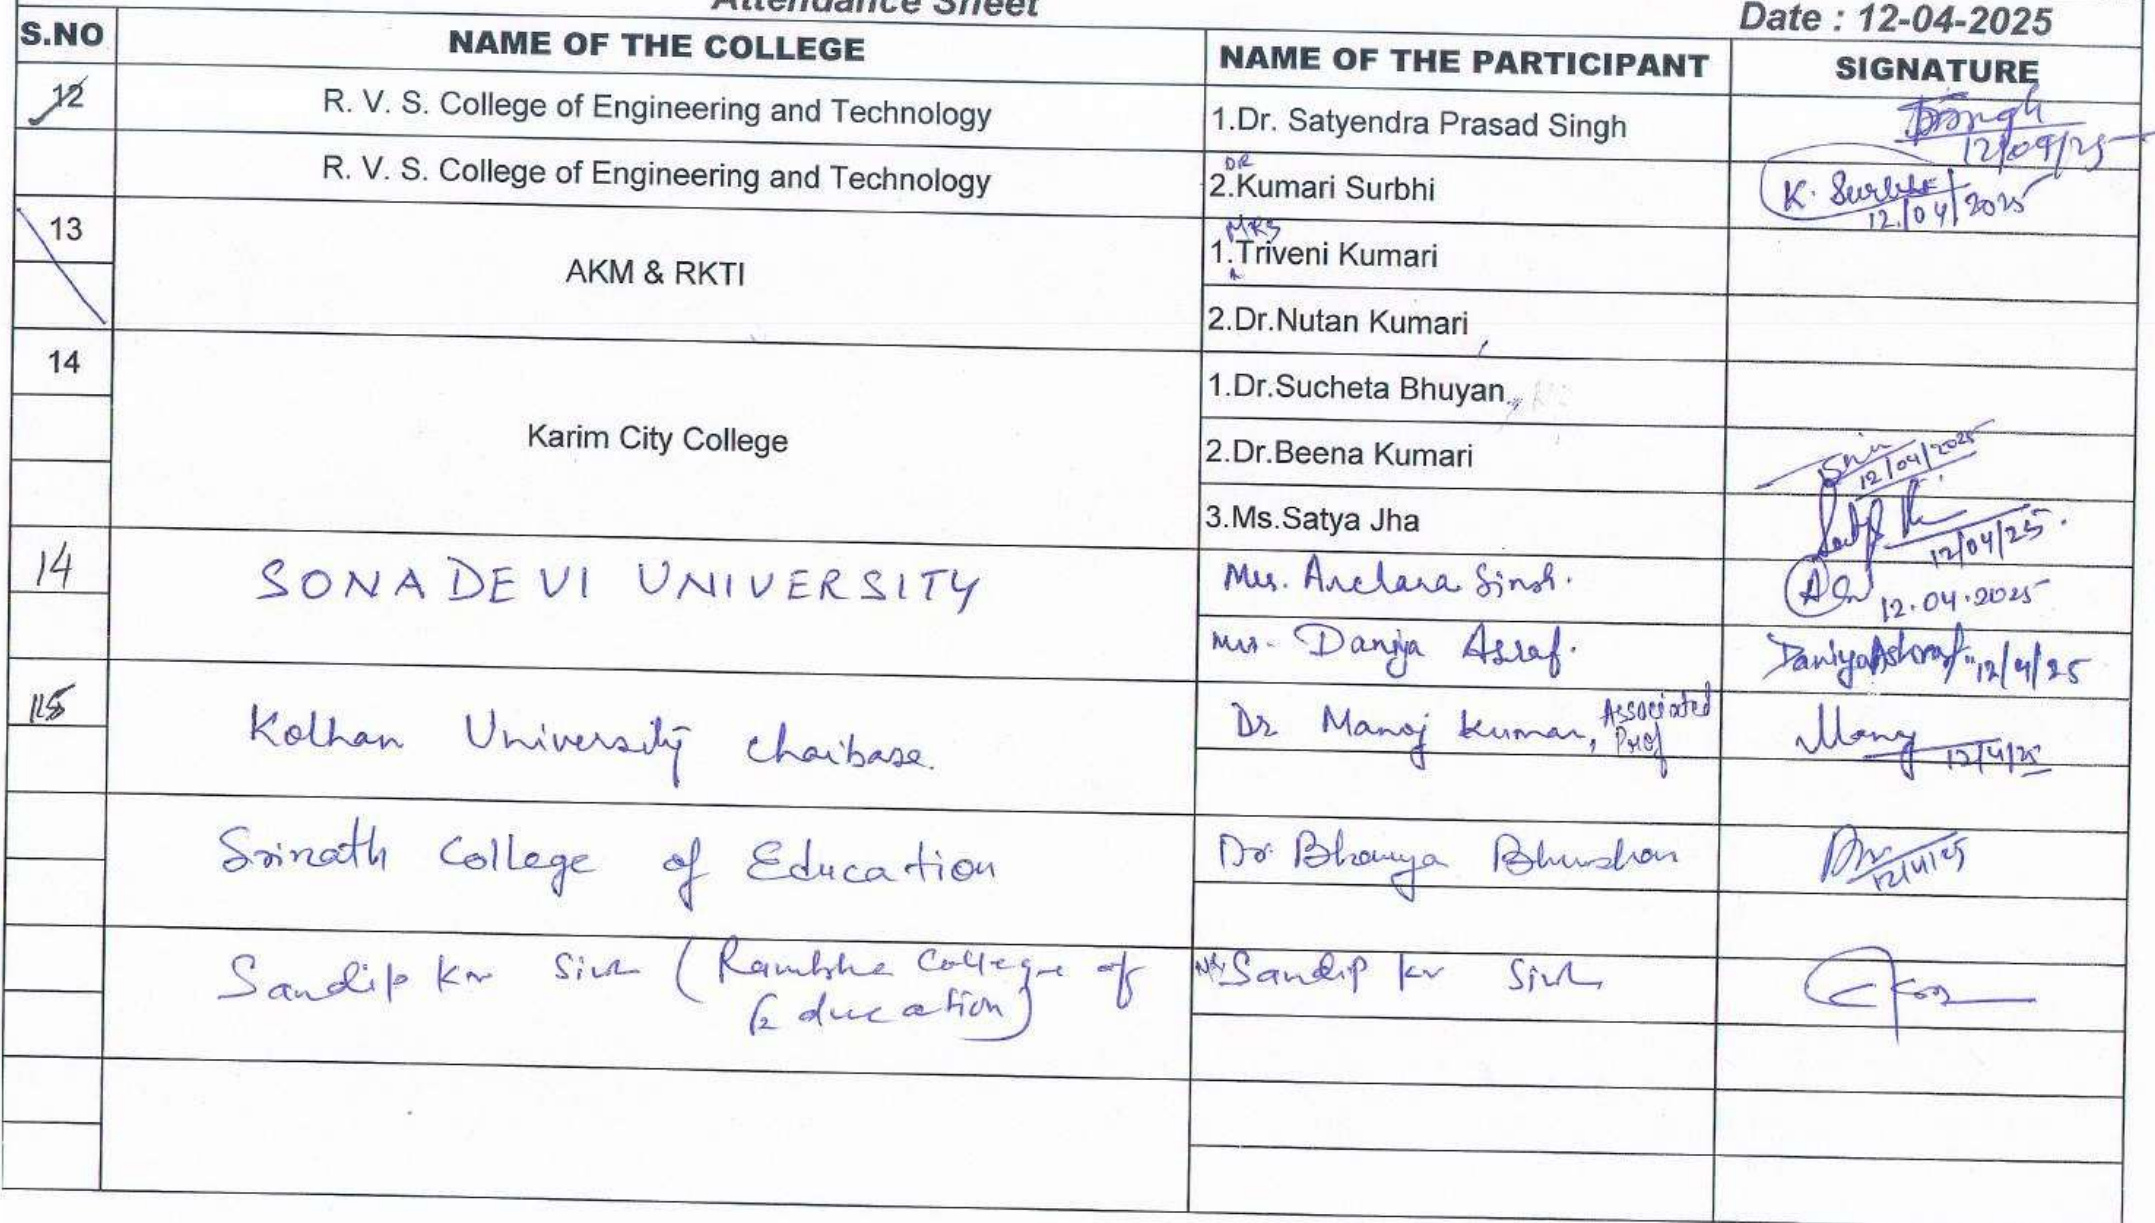 Attendance Sheet
Date : 12-04-2025
S.NO NAME OF THE COLLEGE NAME OF THE PARTICIPANT SIGNATURE
12 R. V. S. College of Engineering and Technology 1.Dr. Satyendra Prasad Singh
12/09/25
R. V. S. College of Engineering and Technology DR 2.Kumari Surbhi K. Surbhi
12/04/2025
13 AKM & RKTI MRS 1.Triveni Kumari
2.Dr.Nutan Kumari
14 Karim City College 1.Dr.Sucheta Bhuyan
2.Dr.Beena Kumari 12/04/2025
3.Ms.Satya Jha 12/04/25.
14 SONA DEVI UNIVERSITY Mrs. Singh. 12.04.2025
Mrs. Daniya Assraf. Daniya Ashraf 12/4/25
15 Kolhan University Chaibasa. Dr Manoj Kumar, Associated Prof Manoj 12/4/25
Srinath College of Education Dr. Bhawya Bhushan 12/4/25
Sandip Kr (Rambha College of Education) Sandip kr